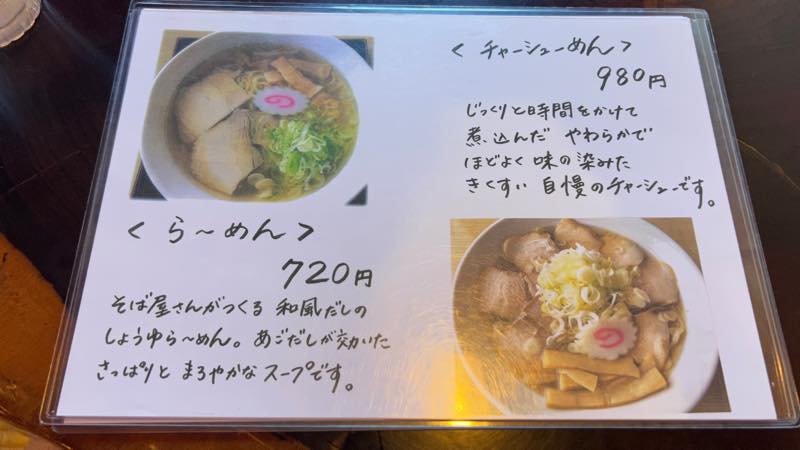 〈 ら～めん 〉
720円
そば屋さんがつくる 和風だしの
しょうゆら～めん。あごだしが効いた
さっぱりと まろやかなスープです。
〈 チャーシューめん 〉
980円
じっくりと時間をかけて
煮込んだ やわらかで
ほどよく 味の染みた
きくすい 自慢のチャーシューです。